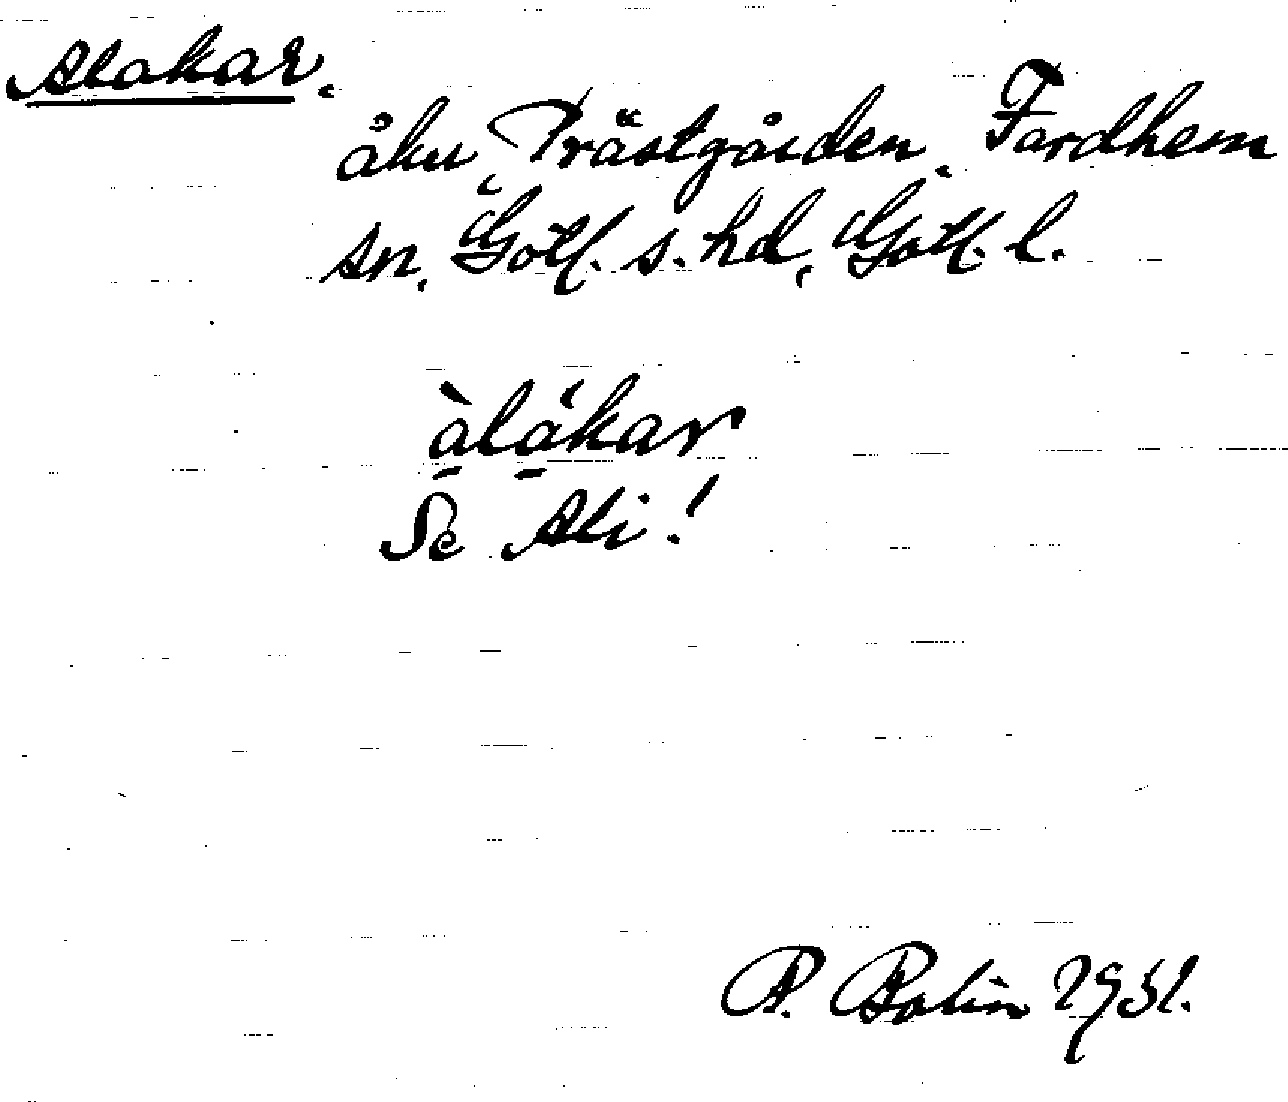 Alakar.
åkr, Prästgården, Fardhem
sn, Gotl. s. hd, Gotl. l.
àlákar
Se Ali!
P. Bolin 1931.